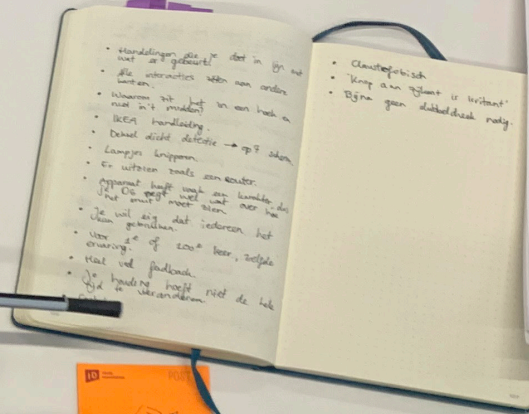 • Handelingen die je doet in lijn met
wat er gebeurt!
• Alle interacties zitten aan andere
kanten.
• Waarom zit het in een hoek en
niet in 't midden?
• IKEA handleiding.
• Deksel dicht detectie → op 7
• Lampjes knipperen.
• Er uitzien zoals een router.
• Apparaat heeft vaak een karakter, dus
je wel wat over hoe
het eruit moet zien.
• Je wil eig dat iedereen het
kan gebruiken.
• Voor 1e of 200e keer, zelfde
ervaring.
• Heel veel feedback.
• Je houding hoeft niet de hele
tijd te veranderen.
• Claustrofobisch
• 'Knop aan zijkant is irritant'
• Bijna geen dubbelcheck nodig.